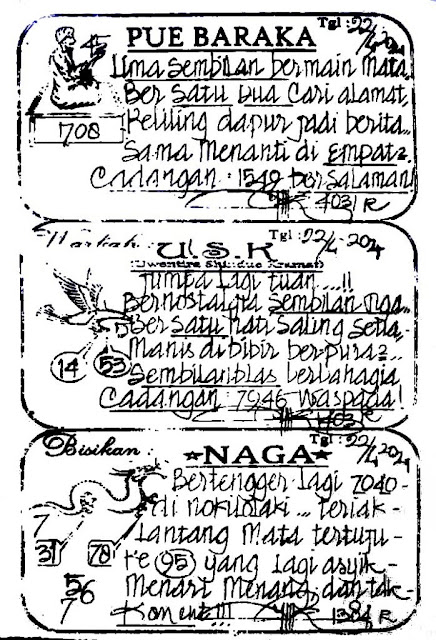 Tgl : 22/4 2024
PUE BARAKA
45
Lima Sembilan bermain Mata..
Ber Satu Dua Cari alamat.
708
Keliling dapur jadi berita..
Sama Menanti di Empat2.
Cadangan : 1549 bersalaman
4031 R
Tgl : 22/4-2024
U.S.K
Jumpa lagi tuan ...!!
Bernostalgia Sembilan nga..
Ber Satu hati Saling Setia,-
14 53
Manis dibibir berpura2...
Sembilanblas berbahagia
Cadangan : 7946 Waspada!
Bisikan :
Tgl : 22/4 2024
NAGA
Bertengger lagi 7040-
Teriak-
7
Lantang Mata tertuju-
31 78
ke 95 yang lagi asyik-
56
Menari Menang dan tak-
7
Koment!!!
1384 R